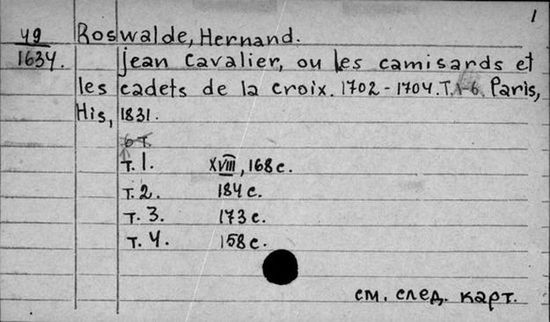 1
49
1634.
Roswalde, Hernand.
Jean Cavalier, ou les camisards et
les cadets de la croix. 1702-1704. T. 1-6. Paris,
His, 1831.
6 т.
т. 1. XVIII, 168 с.
т. 2. 184 с.
т. 3. 173 с.
т. 4. 158 с.
см. след. карт.